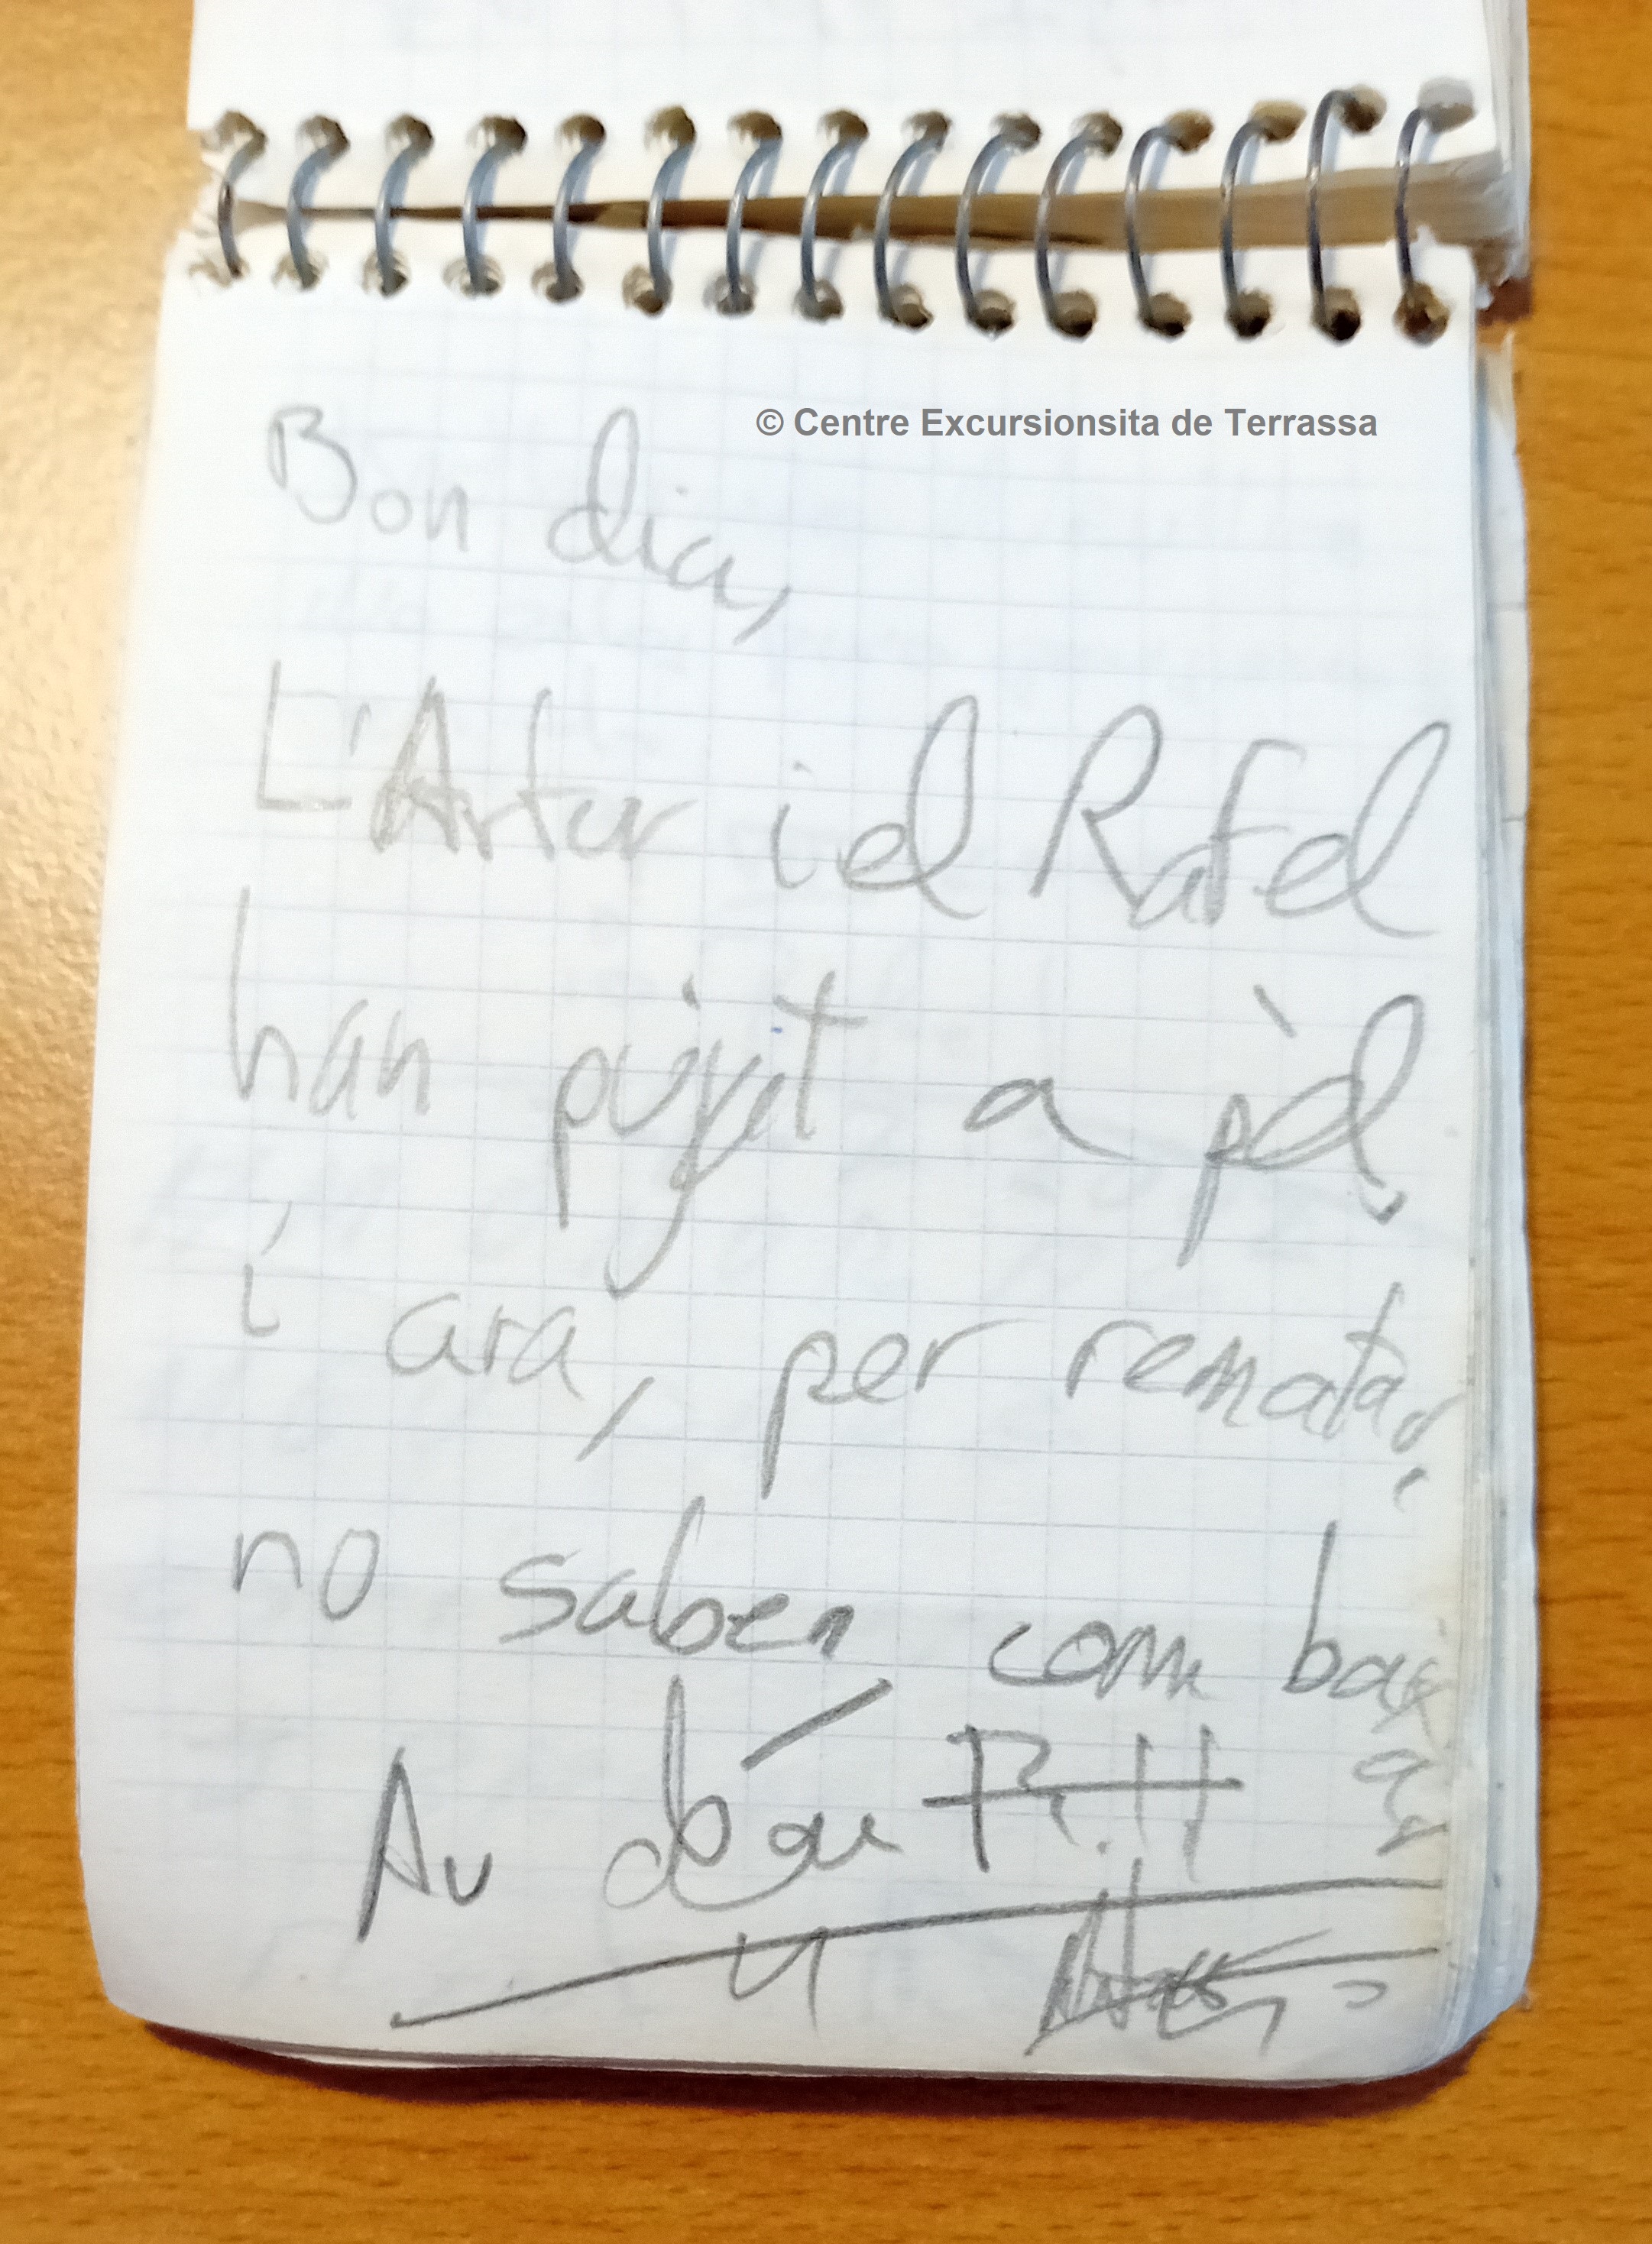 © Centre Excursionsita de Terrassa
Bon dia,
L'Artur i el Rafel
han pujat a pèl,
i ara, per rematar,
no saben com baxar